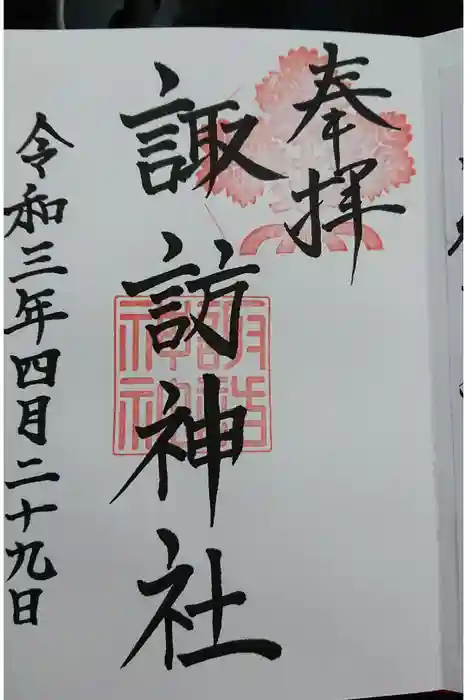 奉拝
諏訪神社
諏訪神社
令和三年四月二十九日